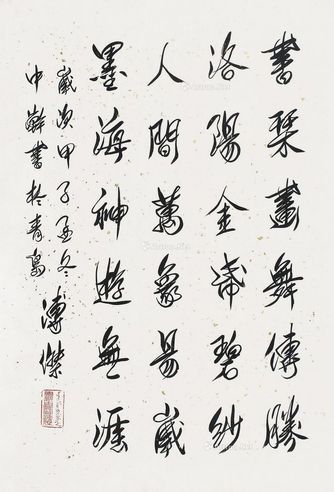 書琹畫舞傳勝
洛陽金碧紗
人間萬象易歲
墨海神遊無涯
歲次甲子孟冬
中澣書於青島
溥傑